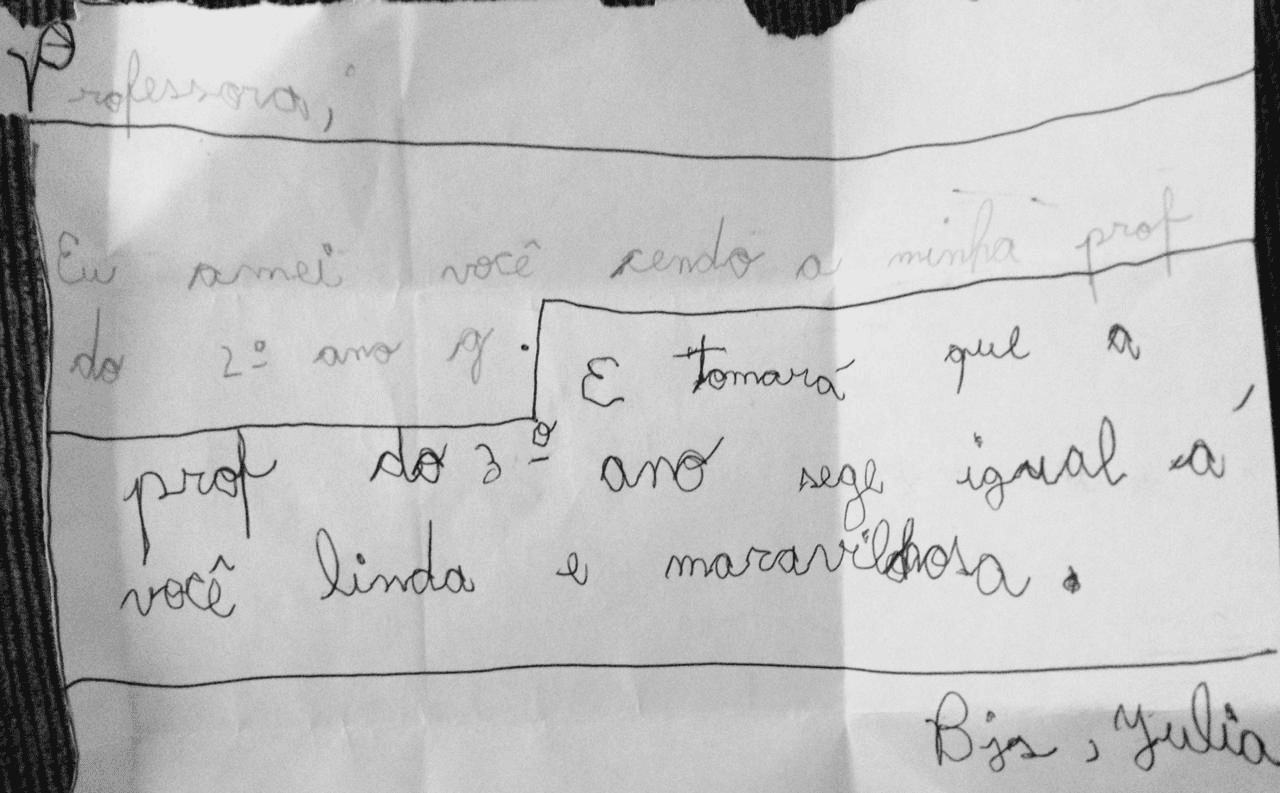 Professora,
Eu amei você sendo a minha prof
do 2º ano g.
E tomará que a
prof do 3º ano sege igual á
você linda e maravilhosa.
Bjs, Yulia